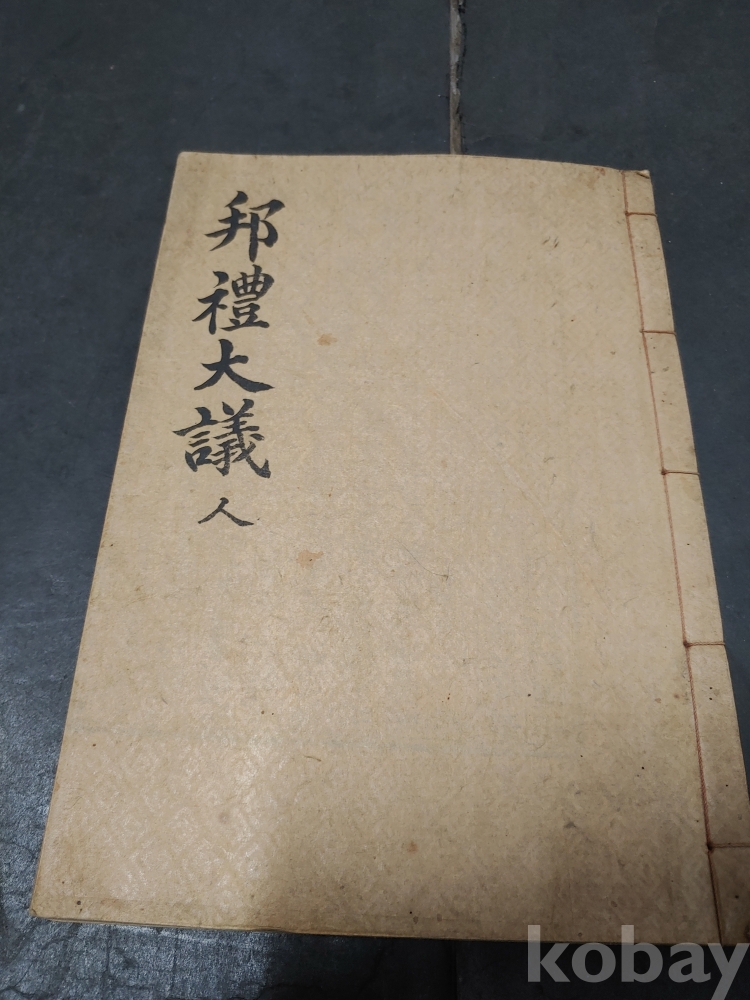 邦禮大議 人
kobay